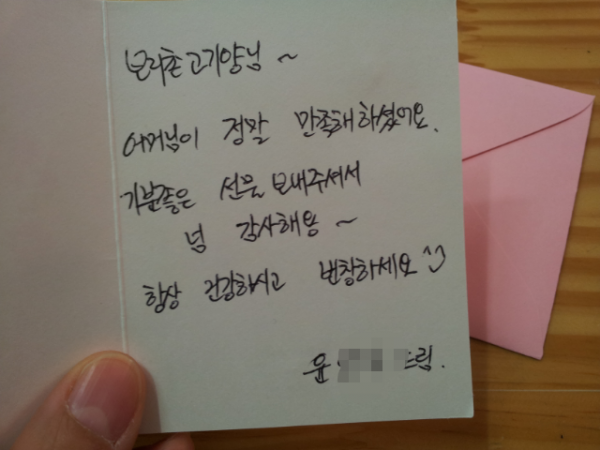 보리촌고기양님 ~
어머님이 정말 만족해하셨어요.
기분좋은 선물 보내주셔서
넘 감사해용 ~
항상 건강하시고 번창하세요 ^^
윤 드림.